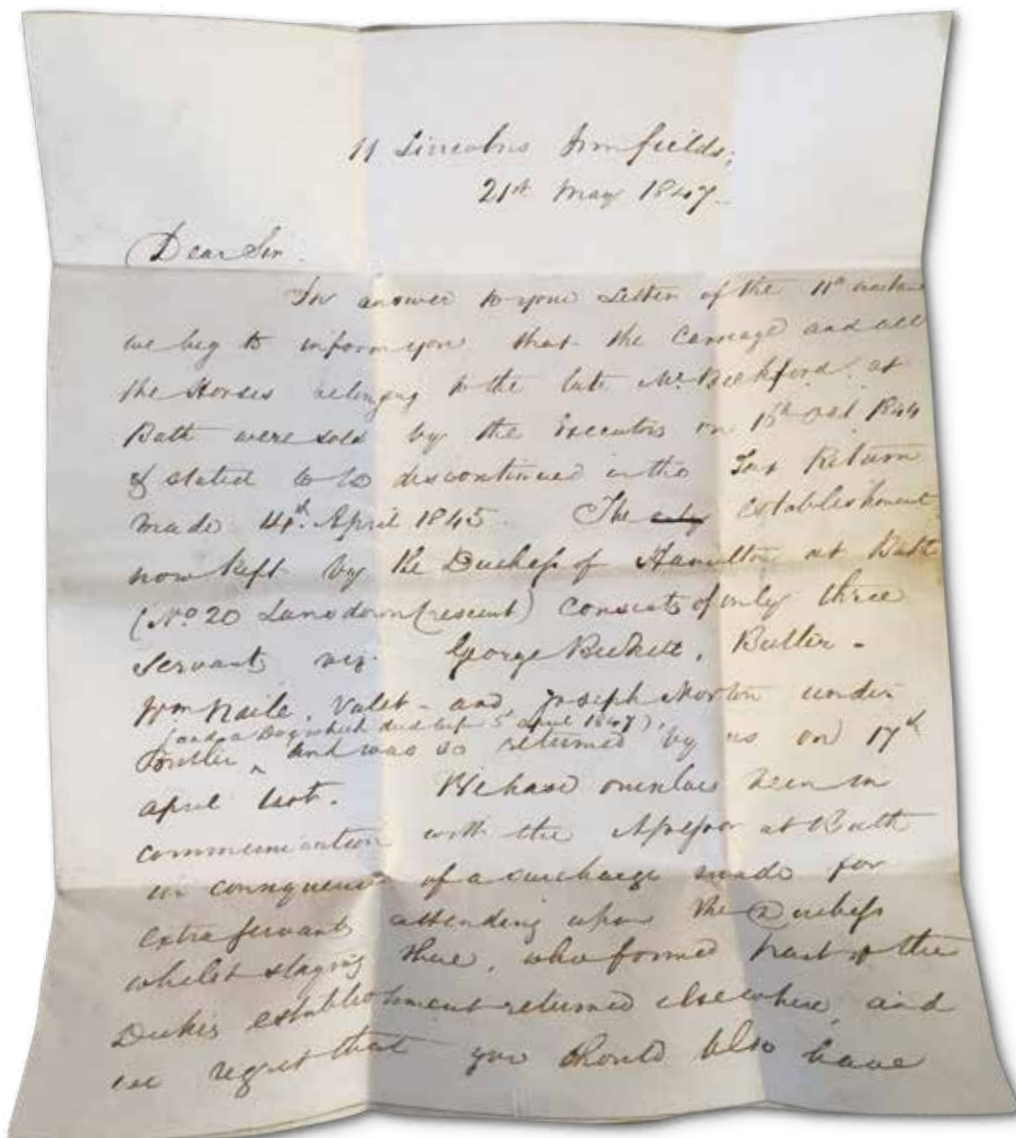 11 Lincolns Inn fields,
21st May 1847
Dear Sir.
In answer to your Letter of the 11th instant
we beg to inform you that the Carriage and all
the Horses belonging to the late Mr. Beckford at
Bath were sold by the Executors on Oct. 1844
& stated to be discontinued in the Tax Return
made 4th April 1845. The only establishment
now kept by the Duchess of Hamilton at Bath
(No 20 Lansdown Crescent) consists of only three
Servants viz. George Beckett, Butler -
Wm Naile, Valet - and Joseph Morton under
(and a Dog which died before 5 April 1847),
Butler ^ and was so returned by us on 17th
April last. We have ourselves been in
communication with the Assessor at Bath
in consequence of a surcharge made for
extra servants attending upon the Duchess
whilst staying there, who formed part of the
Dukes establishment returned elsewhere, and
we regret that you should also have